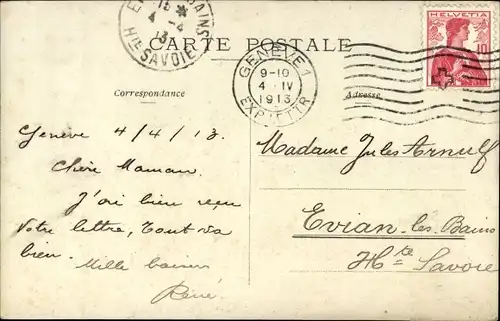 BAINS
15 *
4 -4
13
Hte SAVOIE
CARTE POSTALE
GENÈVE 1
9-10
4 IV
1913
EXP. LETTR
HELVETIA
10
Correspondance
Adresse
Genève 4/4/13.
Chère Maman.
J'ai bien reçu
votre lettre, tout va
bien.
Mille baisers
René.
Madame Jules Arnulf
Evian-les-Bains
Hte Savoie